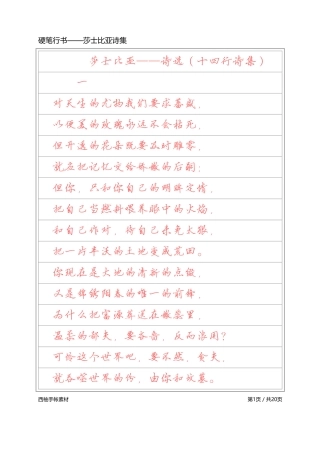 硬笔行书——莎士比亚诗集
莎士比亚——诗选（十四行诗集）
一
对天生的尤物我们要求蕃盛，
以便美的玫瑰永远不会枯死，
但开透的花朵既要及时雕零，
就应把记忆交给娇嫩的后嗣；
但你，只和你自己的明眸定情，
把自己当燃料喂养眼中的火焰，
和自己作对，待自己未免太狠，
把一片丰沃的土地变成荒田。
你现在是大地的清新的点缀，
又是锦绣阳春的唯一的前锋，
为什么把富源葬送在嫩蕊里，
温柔的鄙夫，要吝啬，反而浪用？
可怜这个世界吧，要不然，贪夫，
就吞噬世界的份，由你和坟墓。
西柚字帖素材
第1页 / 共20页